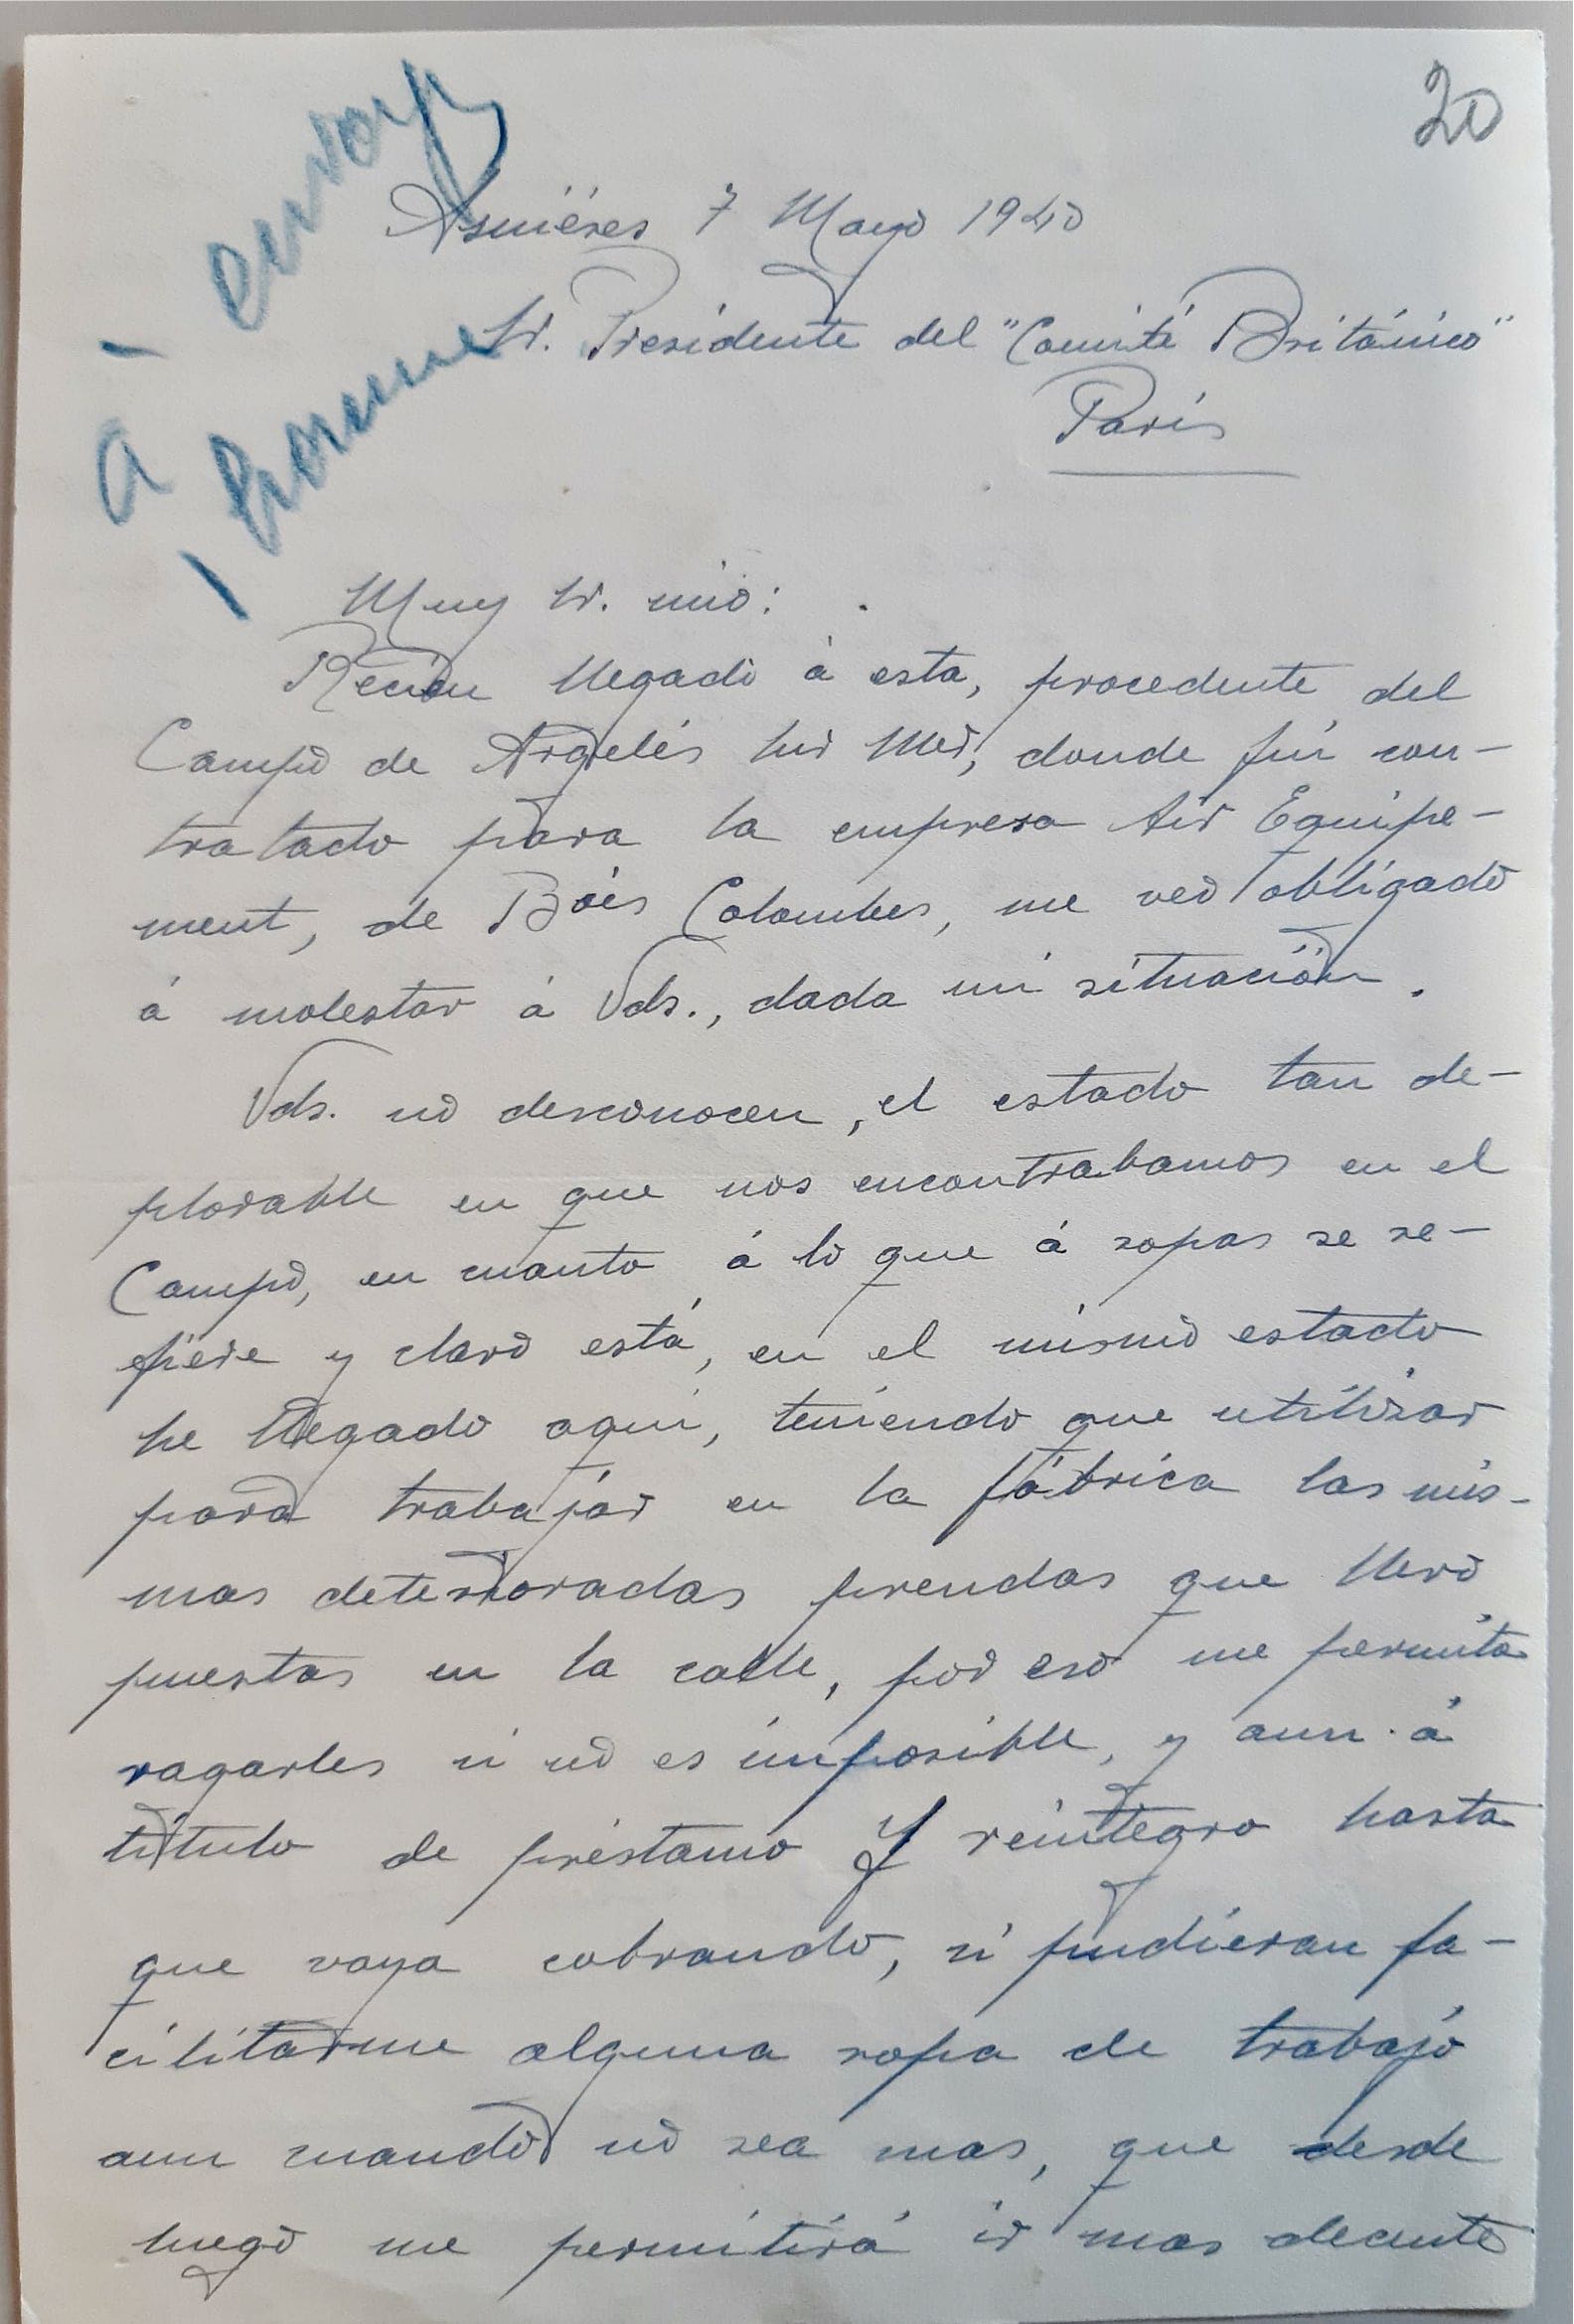 20
à envoyer
1 homme
Asniéres 7 Mayo 1940
Sr. Presidente del "Comité Británico"
Paris
Muy Sr. mio:
Recien llegado á esta, procedente del
Campo de Argelés sur Mer, donde fuí con-
tratado para la empresa Air Equipe-
ment, de Bois Colombes, me veo obligado
á molestar á Vds., dada mi situación.
Vds. no desconocen, el estado tan de-
plorable en que nos encontrabamos en el
Campo, en cuanto á lo que á ropas se re-
fiere y claro está, en el mismo estado
he llegado aqui, teniendo que utilizar
para trabajar en la fábrica las mis-
mas deterioradas prendas que llevo
puestas en la calle, por eso me permito
rogarles si no es imposible, y aun á
titulo de préstamo y reintegro hasta
que vaya cobrando, si pudieran fa-
cilitarme alguna ropa de trabajo
aun cuando no sea mas, que desde
luego me permitirá ir mas decente